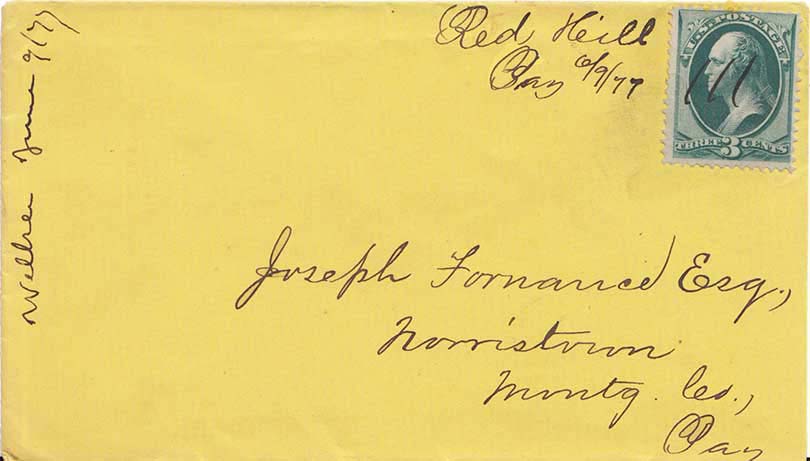 Red Hill
Pa 6/9/77
U.S. POSTAGE
THREE 3 CENTS
June 9/77
Joseph Fornance Esq.,
Norristown
Montg. Co.,
Pa